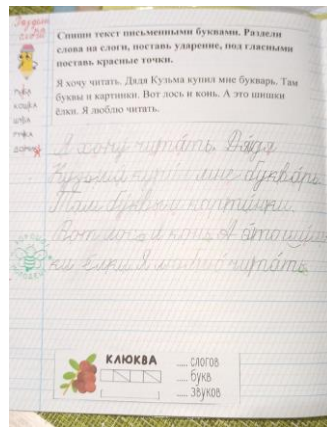 Раздели
на слоги
рука
кошка
Спиши текст письменными буквами. Раздели
слова на слоги, поставь ударение, под гласными
поставь красные точки.
Я хочу читать. Дядя Кузьма купил мне букварь. Там
буквы и картинки. Вот лось и конь. А это шишки
ёлки. Я люблю читать.
Я хочу читать. Дядя
Кузьма купил мне букварь.
Там буквы и картинки
Вот лось и конь А это шиш
ки ёлки Я люблю читать.
КЛЮКВА
слогов
букв
звуков